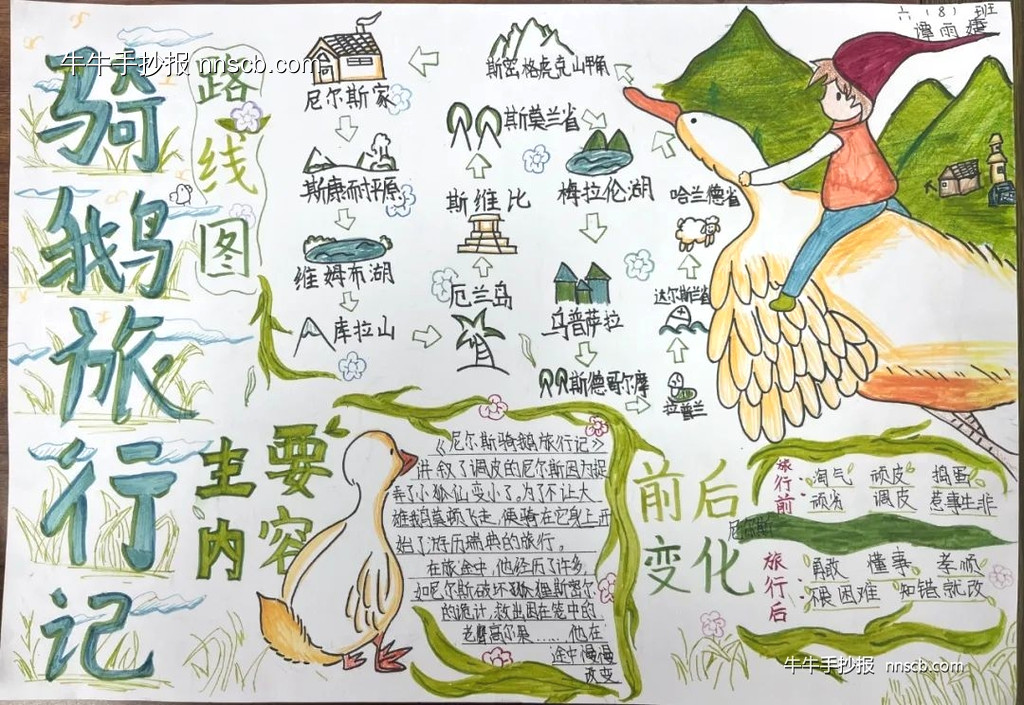 六（8）班
谭雨婕
牛牛手抄报 nnscb.com
骑鹅旅行记
路线图
尼尔斯家
斯康耐平原
维姆布湖
库拉山
厄兰岛
斯维比
斯莫兰省
梅拉伦湖
乌普萨拉
斯德哥尔摩
拉普兰
达尔斯兰省
哈兰德省
斯密格虎克山脚
主要内容
《尼尔斯骑鹅旅行记》
讲叙了调皮的尼尔斯因为捉
弄了小狐仙变小了,为了不让大
雄鹅莫顿飞走,便骑在它身上开
始了游历瑞典的旅行。
在旅途中,他经历了许多,
如尼尔斯破坏狐狸斯密尔
的诡计,救出困在笼中的
老鹰高尔果……他在
途中慢慢
改变
前后变化
尼尔斯
旅行前
淘气 顽皮 捣蛋
顽劣 调皮 惹事生非
旅行后
勇敢 懂事 孝顺
不畏困难 知错就改
牛牛手抄报 nnscb.com